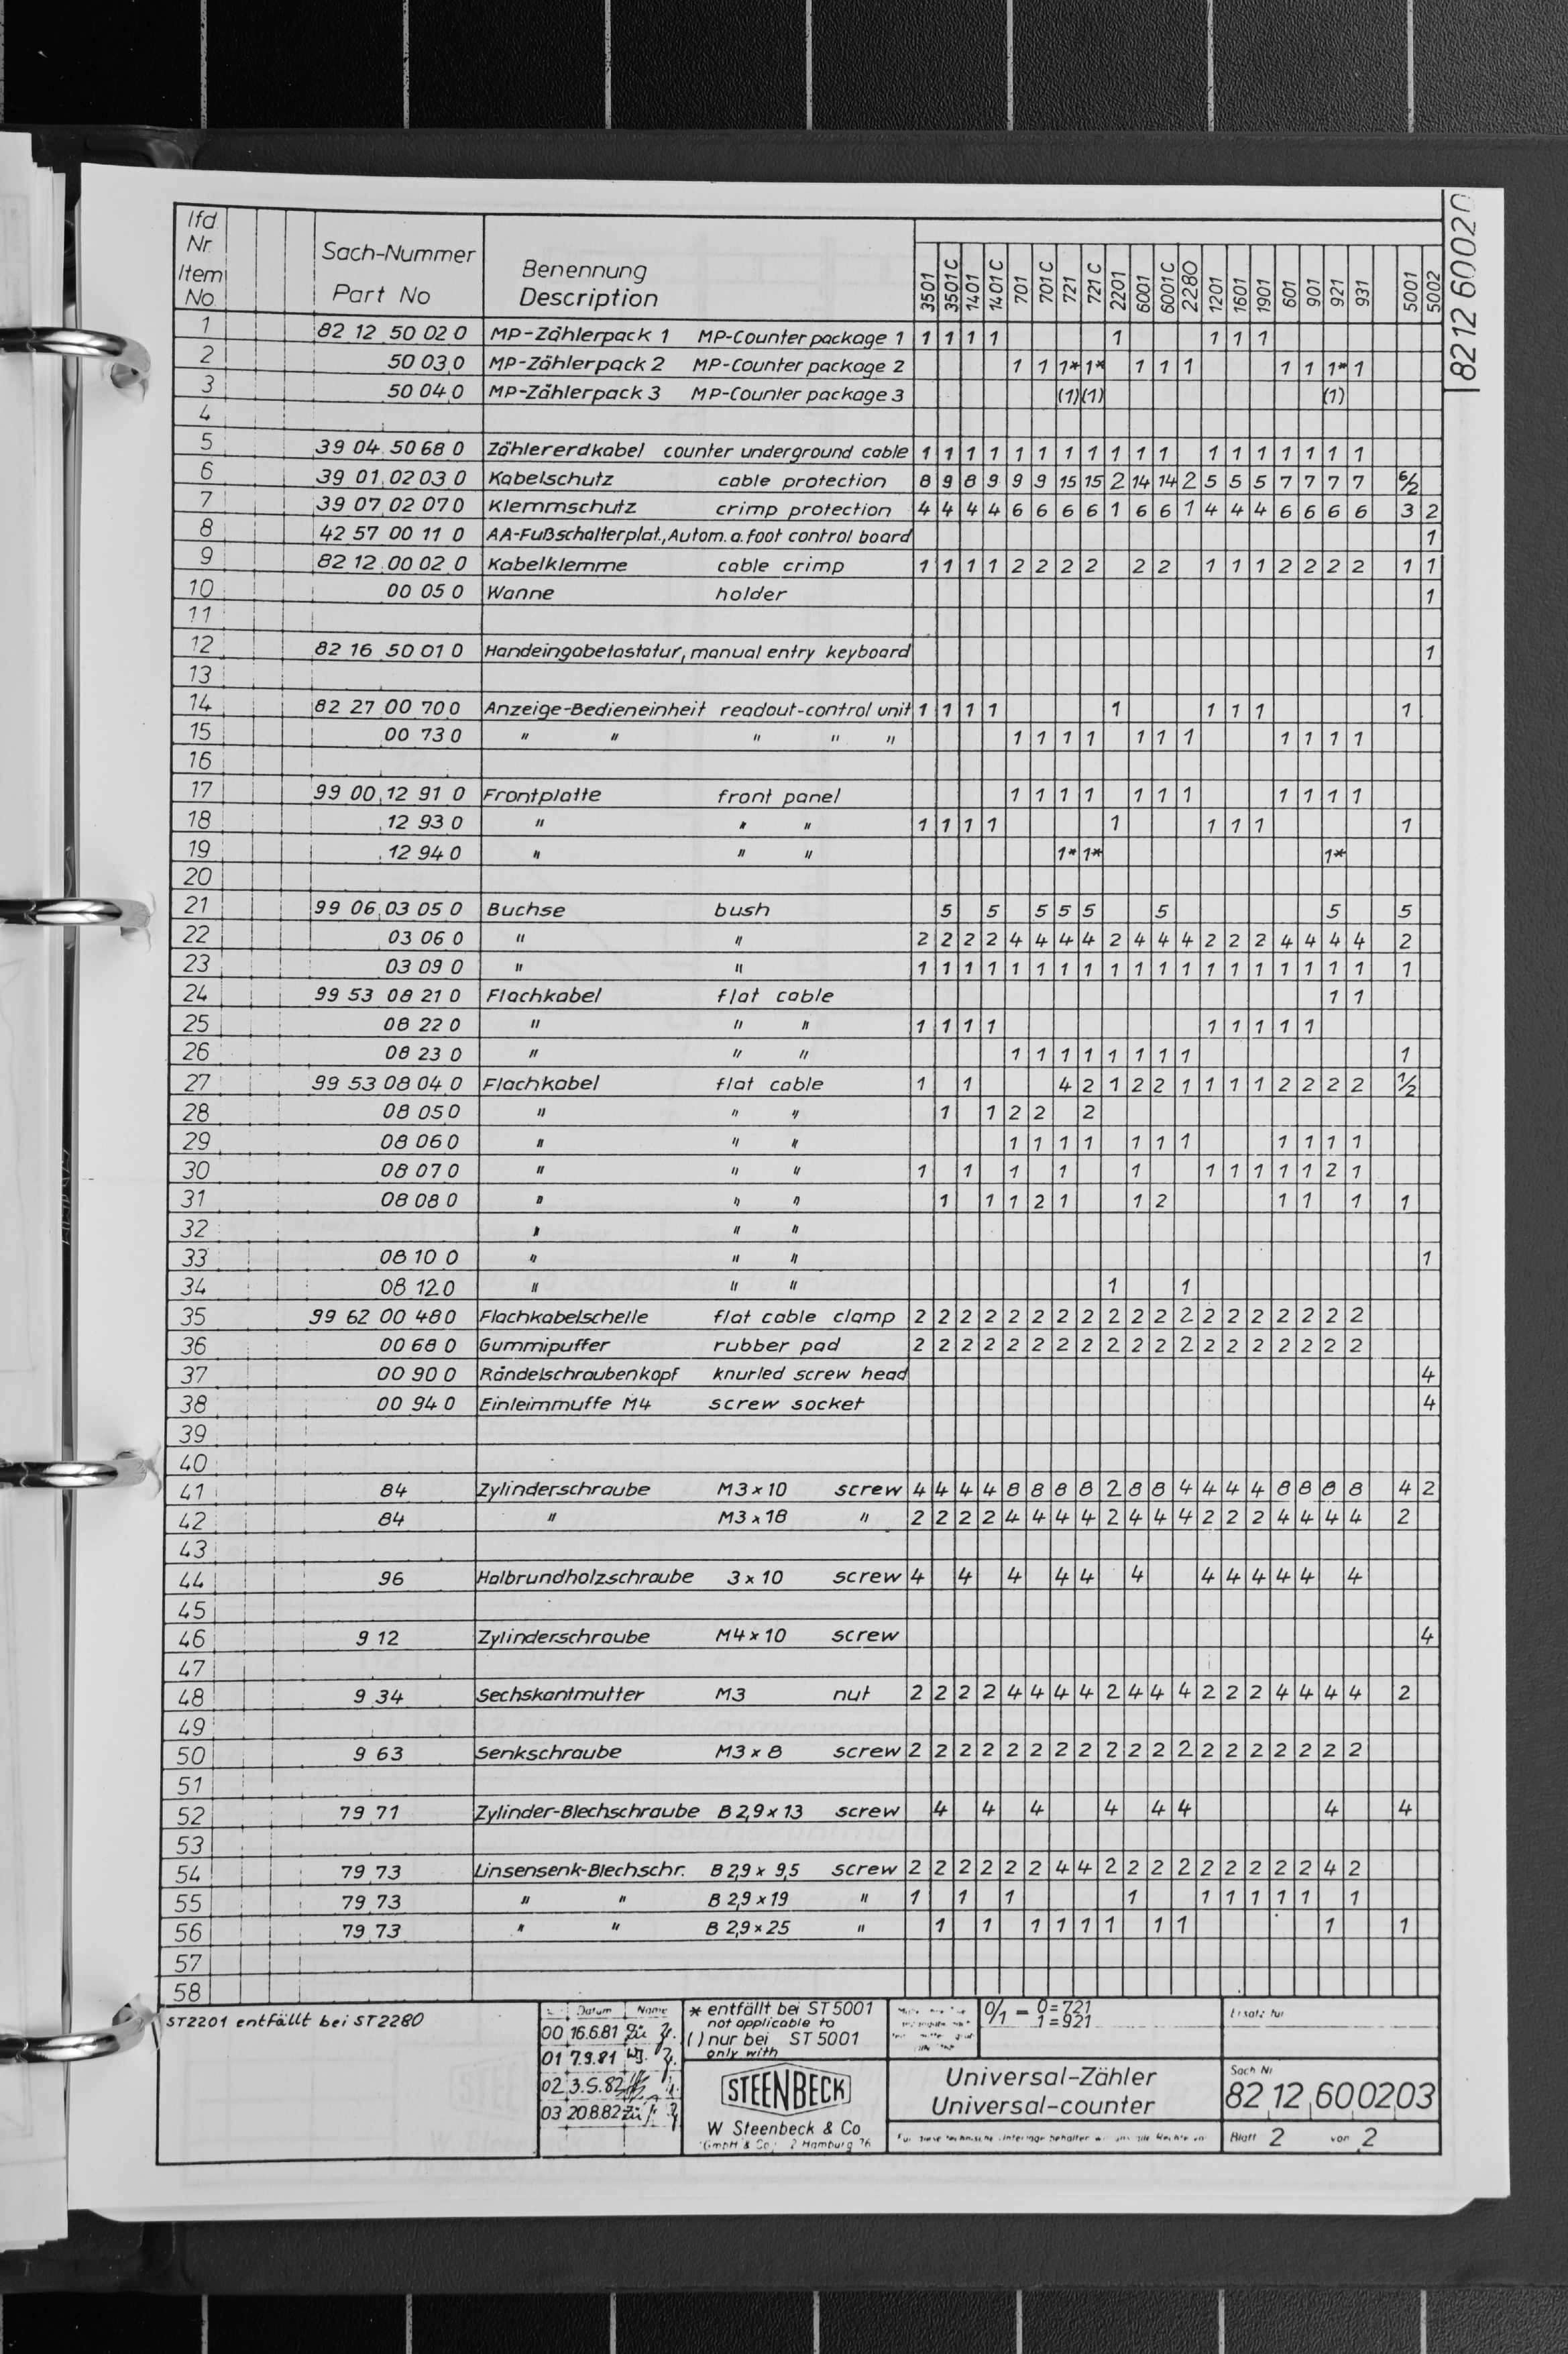 lfd. Nr. Item No. Sach-Nummer Part No Benennung Description 3501 3501 C 1401 1401 C 701 701 C 721 721 C 2201 6001 6001 C 2280 1201 1601 1901 601 901 921 931 5001 5002
8212 60020
1 82 12 50 02 0 MP-Zählerpack 1 MP-Counter package 1 1 1 1 1 1 1 1 1
2 50 03 0 MP-Zählerpack 2 MP-Counter package 2 1 1 1* 1* 1 1 1 1 1 1* 1
3 50 04 0 MP-Zählerpack 3 MP-Counter package 3 (1) (1) (1)
4
5 39 04 50 68 0 Zählererdkabel counter underground cable 1 1 1 1 1 1 1 1 1 1 1 1 1 1 1 1 1 1
6 39 01 02 03 0 Kabelschutz cable protection 8 9 8 9 9 9 15 15 2 14 14 2 5 5 5 7 7 7 7 6/2
7 39 07 02 07 0 Klemmschutz crimp protection 4 4 4 4 6 6 6 6 1 6 6 1 4 4 4 6 6 6 6 3 2
8 42 57 00 11 0 AA-Fußschalterplat., Autom. a. foot control board 1
9 82 12 00 02 0 Kabelklemme cable crimp 1 1 1 1 2 2 2 2 2 2 1 1 1 2 2 2 2 1 1
10 00 05 0 Wanne holder 1
11
12 82 16 50 01 0 Handeingabetastatur, manual entry keyboard 1
13
14 82 27 00 70 0 Anzeige-Bedieneinheit readout-control unit 1 1 1 1 1 1 1 1 1
15 00 73 0 " " " " " 1 1 1 1 1 1 1 1 1 1 1
16
17 99 00 12 91 0 Frontplatte front panel 1 1 1 1 1 1 1 1 1 1 1
18 12 93 0 " " " 1 1 1 1 1 1 1 1 1
19 12 94 0 " " " 1* 1* 1*
20
21 99 06 03 05 0 Buchse bush 5 5 5 5 5 5 5 5
22 03 06 0 " " 2 2 2 2 4 4 4 4 2 4 4 4 2 2 2 4 4 4 4 2
23 03 09 0 " " 1 1 1 1 1 1 1 1 1 1 1 1 1 1 1 1 1 1 1 1
24 99 53 08 21 0 Flachkabel flat cable 1 1
25 08 22 0 " " " 1 1 1 1 1 1 1 1 1
26 08 23 0 " " " 1 1 1 1 1 1 1 1 1
27 99 53 08 04 0 Flachkabel flat cable 1 1 4 2 1 2 2 1 1 1 1 2 2 2 2 1/2
28 08 05 0 " " " 1 1 2 2 2
29 08 06 0 " " " 1 1 1 1 1 1 1 1 1 1 1
30 08 07 0 " " " 1 1 1 1 1 1 1 1 1 1 2 1
31 08 08 0 " " " 1 1 1 2 1 1 2 1 1 1 1
32 " " "
33 08 10 0 " " " 1
34 08 12 0 " " " 1 1
35 99 62 00 48 0 Flachkabelschelle flat cable clamp 2 2 2 2 2 2 2 2 2 2 2 2 2 2 2 2 2 2 2
36 00 68 0 Gummipuffer rubber pad 2 2 2 2 2 2 2 2 2 2 2 2 2 2 2 2 2 2 2
37 00 90 0 Rändelschraubenkopf knurled screw head 4
38 00 94 0 Einleimmuffe M4 screw socket 4
39
40
41 84 Zylinderschraube M3 x 10 screw 4 4 4 4 8 8 8 8 2 8 8 4 4 4 4 8 8 8 8 4 2
42 84 " M3 x 18 " 2 2 2 2 4 4 4 4 2 4 4 4 2 2 2 4 4 4 4 2
43
44 96 Halbrundholzschraube 3 x 10 screw 4 4 4 4 4 4 4 4 4 4 4 4
45
46 9 12 Zylinderschraube M4 x 10 screw 4
47
48 9 34 Sechskantmutter M3 nut 2 2 2 2 4 4 4 4 2 4 4 4 2 2 2 4 4 4 4 2
49
50 9 63 Senkschraube M3 x 8 screw 2 2 2 2 2 2 2 2 2 2 2 2 2 2 2 2 2 2 2
51
52 79 71 Zylinder-Blechschraube B 2,9 x 13 screw 4 4 4 4 4 4 4 4
53
54 79 73 Linsensenk-Blechschr. B 2,9 x 9,5 screw 2 2 2 2 2 2 4 4 2 2 2 2 2 2 2 2 2 4 2
55 79 73 " " B 2,9 x 19 " 1 1 1 1 1 1 1 1 1 1
56 79 73 " " B 2,9 x 25 " 1 1 1 1 1 1 1 1 1 1
57
58
ST2201 entfällt bei ST2280
Datum Name
00 16.6.81 Zü
01 7.9.81
02 3.5.82
03 20.8.82 Zü
* entfällt bei ST 5001
not applicable to
( ) nur bei ST 5001
only with
0/1 = 0 = 721
1 = 921
Ersatz für
STEENBECK
W Steenbeck & Co
GmbH & Co 2 Hamburg 76
Universal-Zähler
Universal-counter
Für diese technische Unterlage behalten wir uns alle Rechte vor
Sach Nr
82 12 600203
Blatt 2 von 2